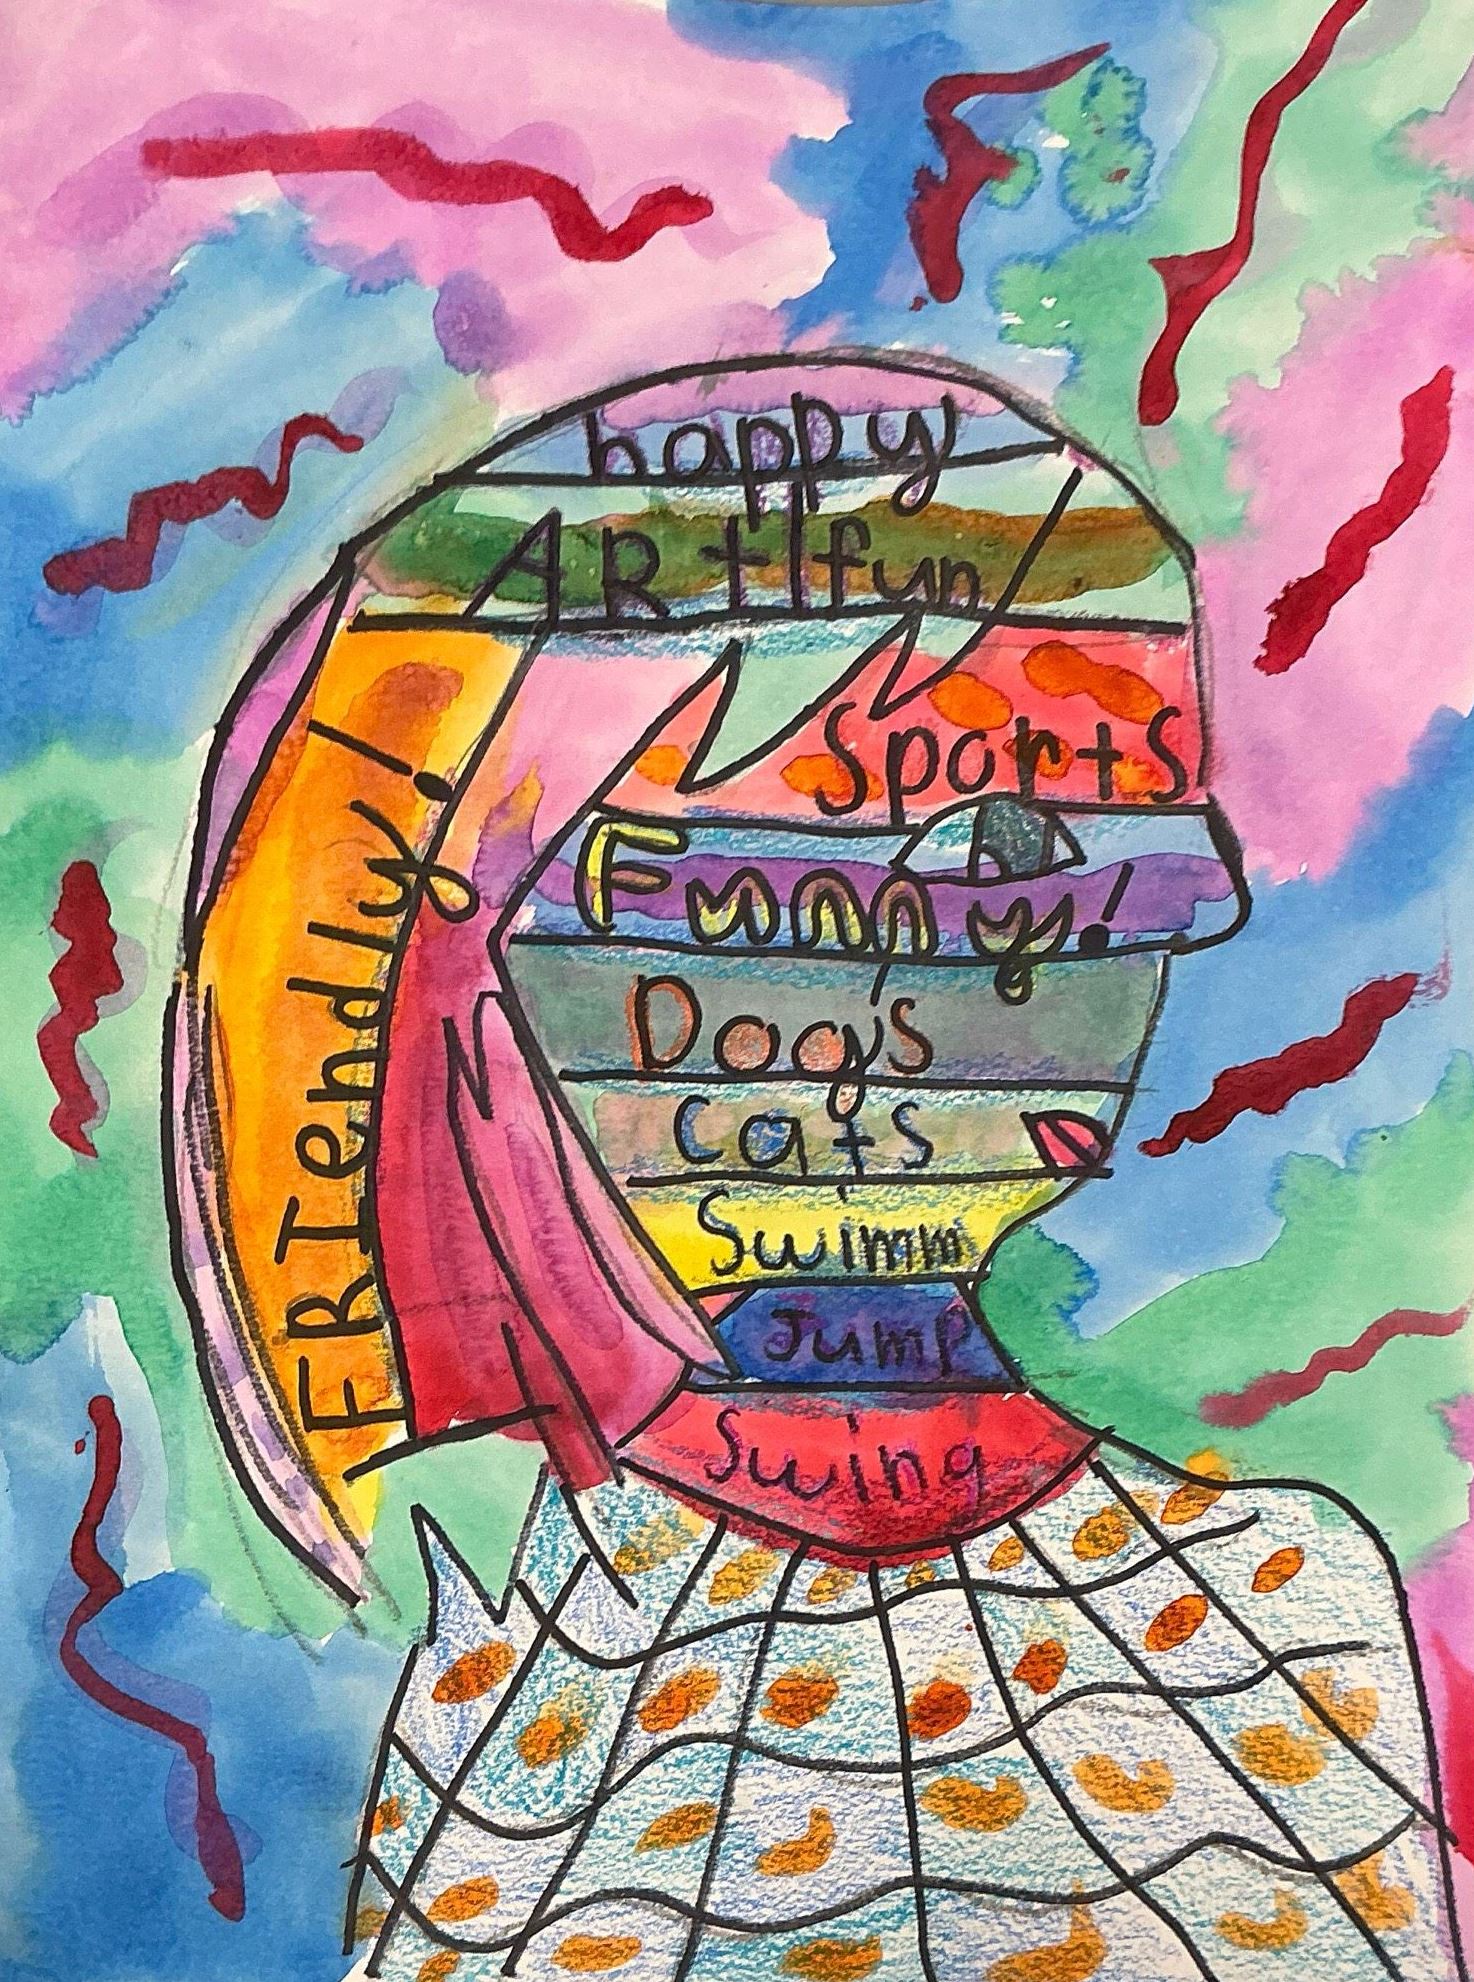 happy
ARt fun
Sports
Funny!
Dogs
cats
Swimm
Jump
Swing
FRIendly!